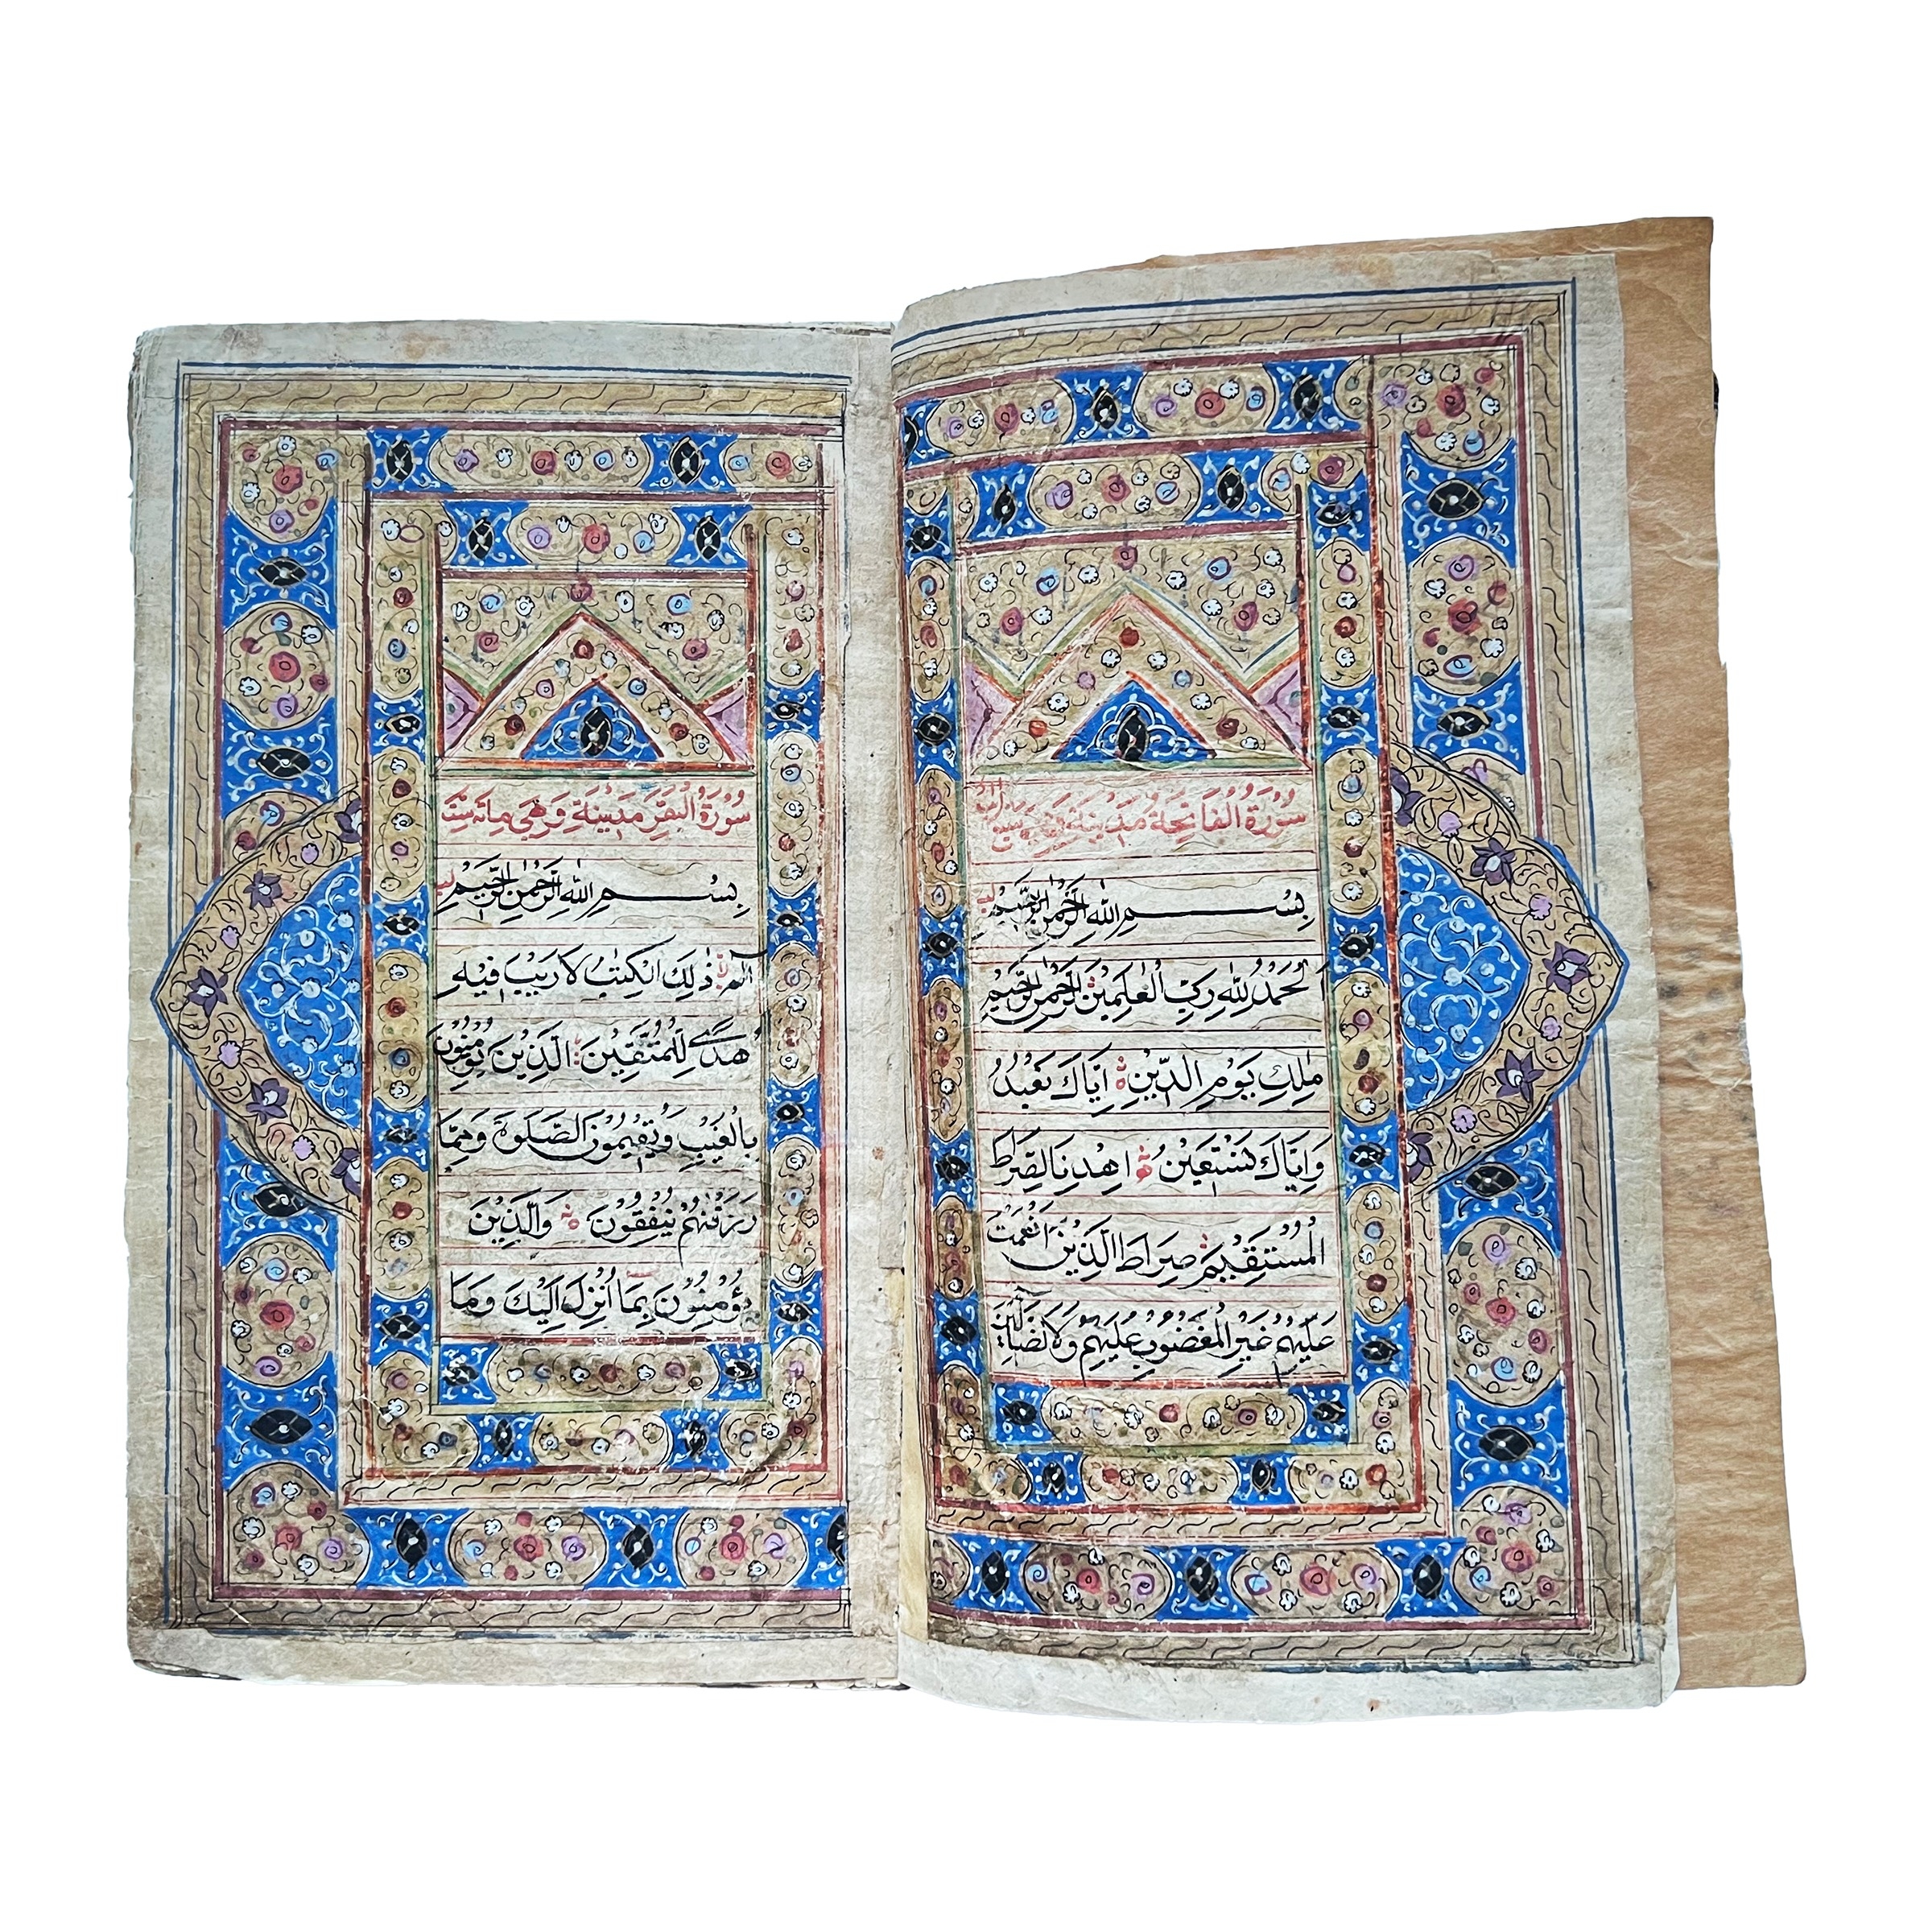 سُورَةُ الْفَاتِحَةُ مَدَنِيَّةٌ وَهِيَ سَبْعُ
بِسْمِ اللّٰهِ الرَّحْمٰنِ الرَّحِيْمِ
اَلْحَمْدُ لِلّٰهِ رَبِّ الْعٰلَمِيْنَ الرَّحْمٰنِ الرَّحِيْمِ
مٰلِكِ يَوْمِ الدِّيْنِ اِيَّاكَ نَعْبُدُ
وَاِيَّاكَ نَسْتَعِيْنُ اِهْدِنَا الصِّرَاطَ
الْمُسْتَقِيْمَ صِرَاطَ الَّذِيْنَ اَنْعَمْتَ
عَلَيْهِمْ غَيْرِ الْمَغْضُوْبِ عَلَيْهِمْ وَلَا الضَّالِّيْنَ
سُوْرَةُ الْبَقَرِ مَدَنِيَّةٌ وَهِيَ مِائَة
بِسْمِ اللّٰهِ الرَّحْمٰنِ الرَّحِيْمِ
الٓمّٓ ذٰلِكَ الْكِتٰبُ لَا رَيْبَ فِيْهِ
هُدًى لِلْمُتَّقِيْنَ الَّذِيْنَ يُؤْمِنُوْنَ
بِالْغَيْبِ وَيُقِيْمُوْنَ الصَّلٰوةَ وَمِمَّا
رَزَقْنٰهُمْ يُنْفِقُوْنَ وَالَّذِيْنَ
يُؤْمِنُوْنَ بِمَا اُنْزِلَ اِلَيْكَ وَمَا